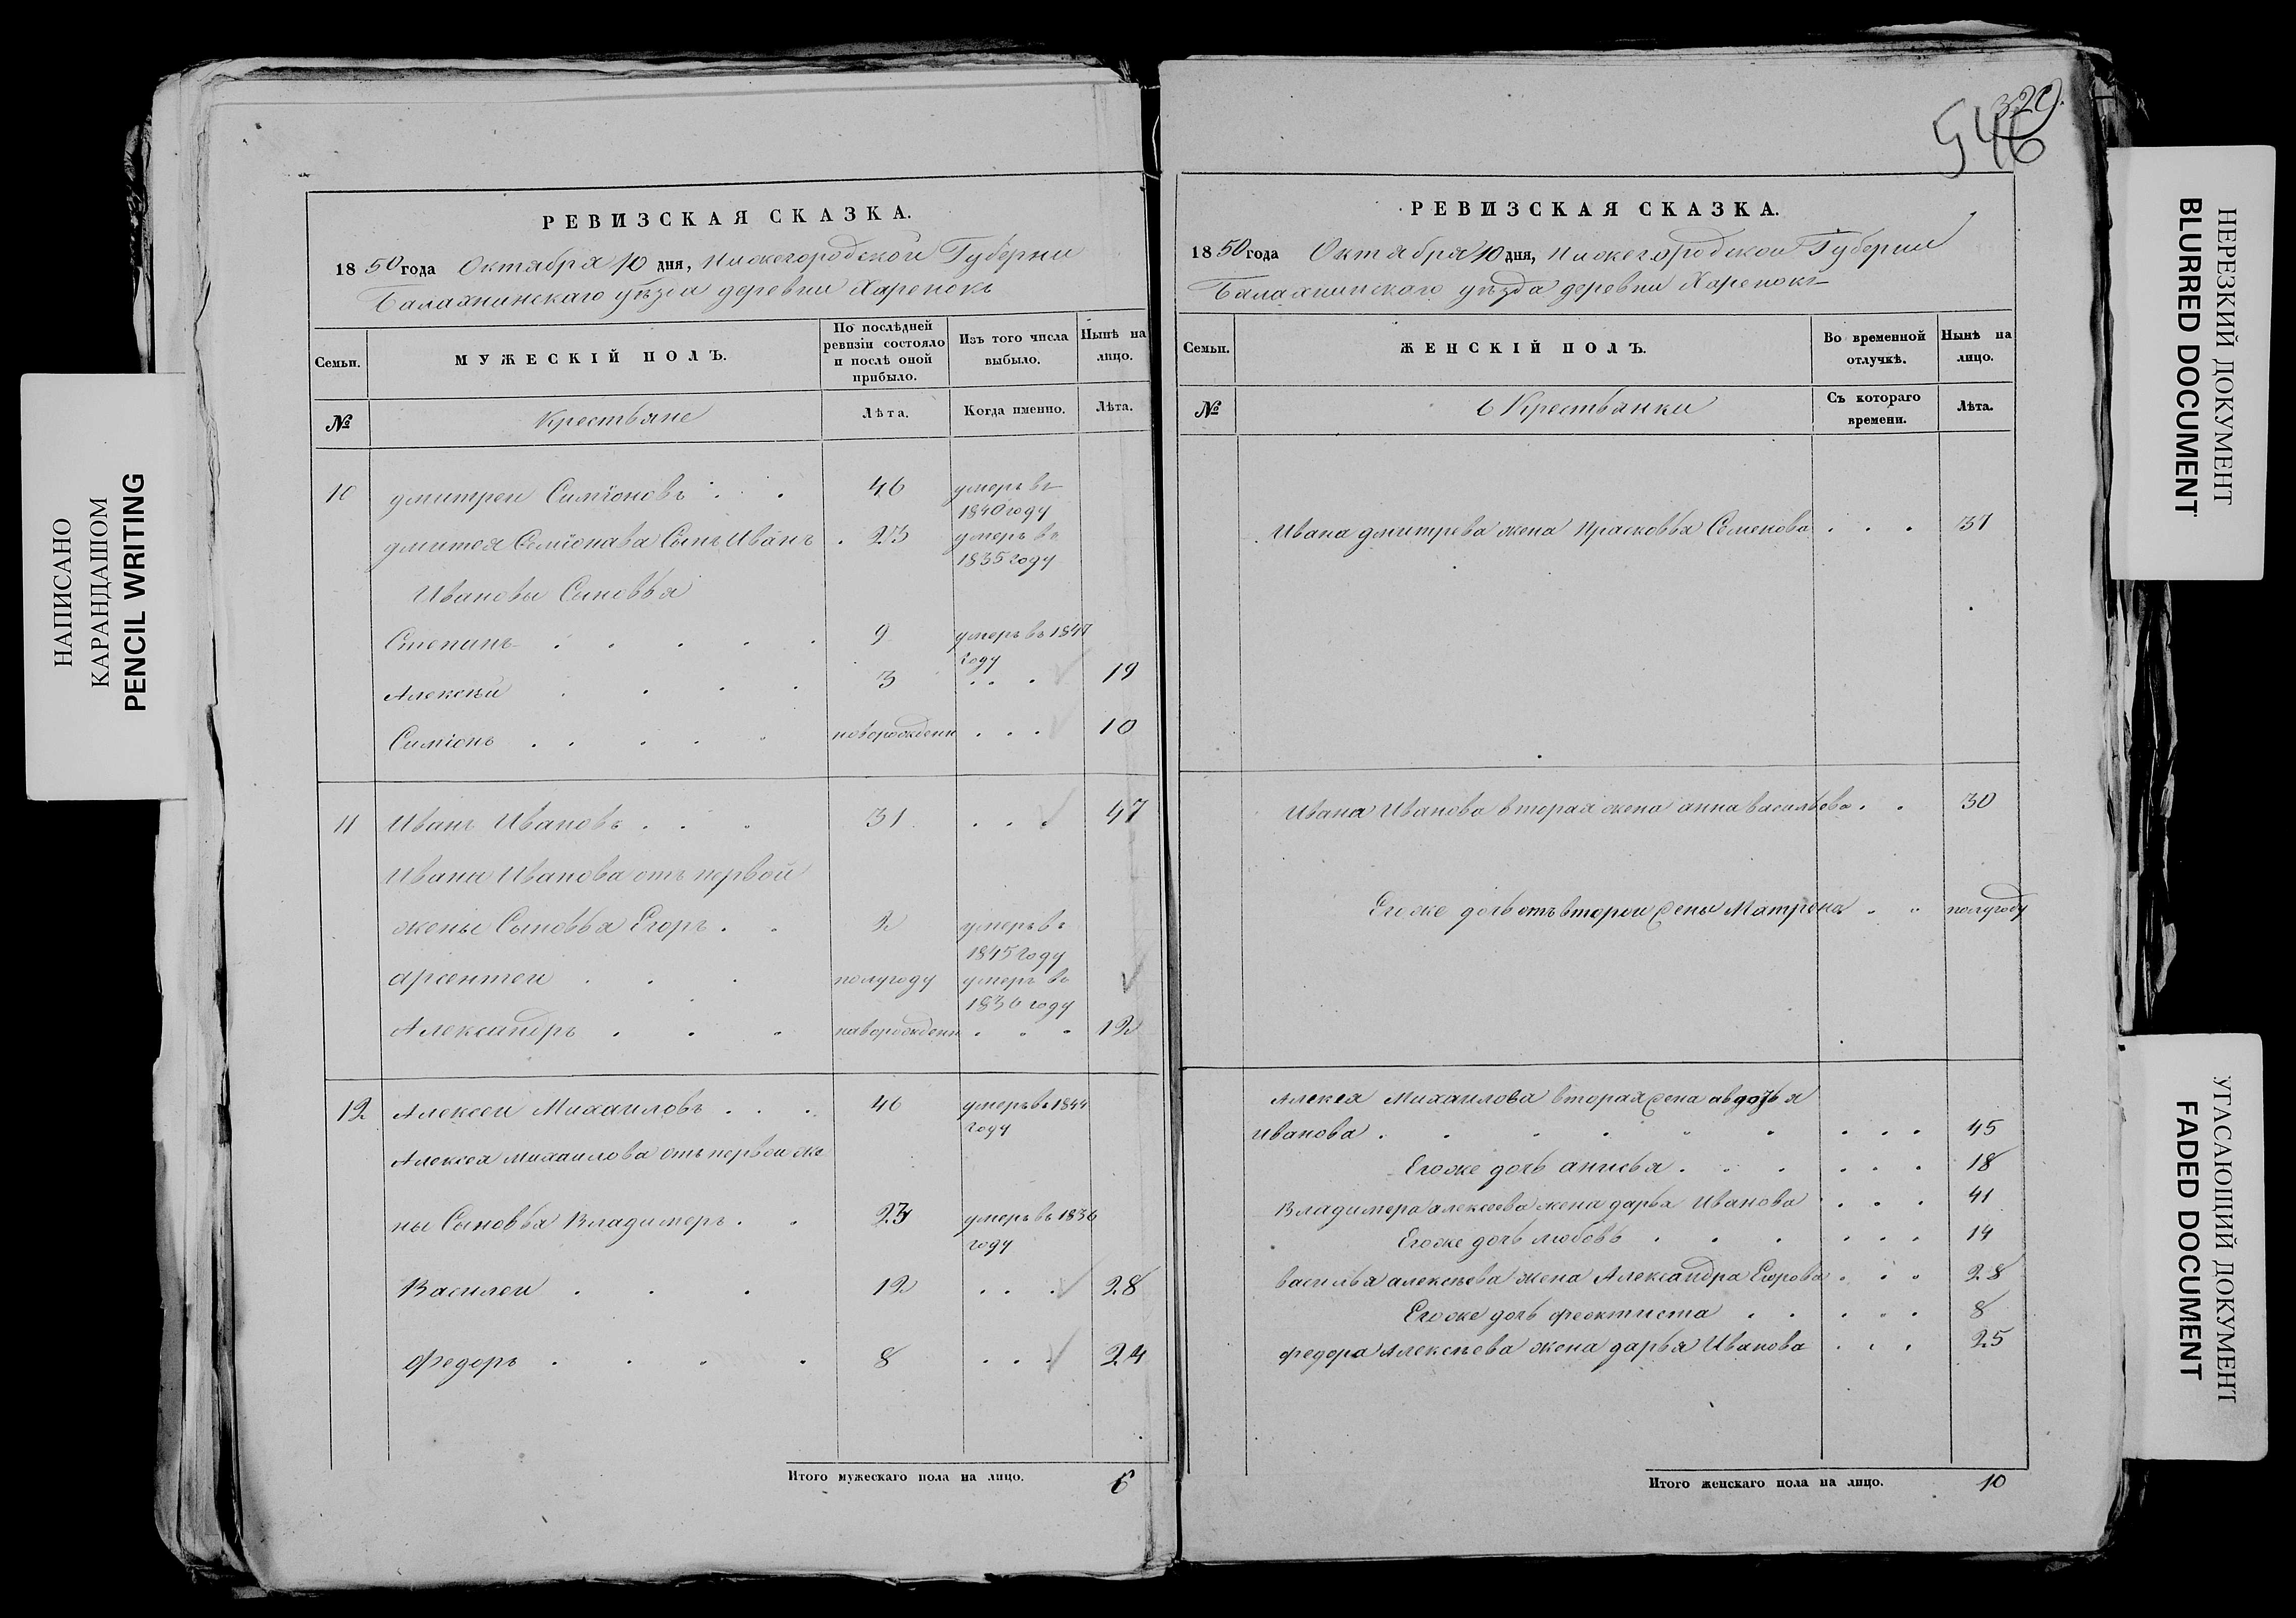 НАПИСАНО
КАРАНДАШОМ
PENCIL WRITING
РЕВИЗСКАЯ СКАЗКА.
1850 года Октября 10 дня, Нижегородской Губерни
Балахнинскаго уѣзда деревни Харенокъ
Семьи.
МУЖЕСКІЙ ПОЛЪ.
По послѣдней ревизіи состояло и послѣ оной прибыло.
Изъ того числа выбыло.
Нынѣ на лицо.
№
Крестьяне
Лѣта.
Когда именно.
Лѣта.
10 дмитреи Симіоновъ . . . 46 умеръ въ
1840 году
дмитея Семіонава Сынъ Иванъ . 23 умеръ въ
1835 году
Ивановы Сыновья
Степанъ . . . . . 9 умеръ въ 1847
году
Алексѣй . . . . 3 . . . 19
Симіонъ . . . . . новорожденн . . . 10
11 Иванъ Ивановъ . . . 31 . . . 47
Ивана Иванова отъ первой
жены Сыновья Егоръ . . 2 умеръ въ
1845 году
арсентеи . . . полугоду умеръ въ
1836 году
Александръ . . . наворожденн . . . 12
12 Алексеи Михаиловъ . . . 46 умеръ въ 1844
году
Алексея михаилова отъ первои же
ны Сыновья Владимеръ . . 23 умеръ въ 1836
году
Василеи . . . 12 . . . 28
Федоръ . . . . 8 . . . 24
Итого мужескаго пола на лицо. 6
329.
546
РЕВИЗСКАЯ СКАЗКА.
1850 года Октября 10 дня, Нижегородскои Губернии
Балахнинскаго уѣзда деревни Харенокъ
Семьи.
ЖЕНСКІЙ ПОЛЪ.
Во временной отлучкѣ.
Нынѣ на лицо.
№
Крестьянки
Съ котораго времени.
Лѣта.
Ивана дмитрева жена Прасковья Семенова . . . 37
Ивана Иванова вторая жена анна васильева . . 30
Егоже дочь отъ второи жены Матрена . . полугоду
Алексея Михаилова вторая жена авдотья
Иванова . . . . . . . . . 45
Егоже дочь анисья . . . . . . 18
Владимера алексеева жена дарья Иванова . . . 41
Егоже дочь любовь . . . . . . 14
василья алексѣева жена Александра Егорова . . . 28
Егоже дочь феоктиста . . . . . 8
федора Алексѣева жена дарья Иванова . . . 25
Итого женскаго пола на лицо. 10
НЕРЕЗКИЙ ДОКУМЕНТ
BLURRED DOCUMENT
УГАСАЮЩИЙ ДОКУМЕНТ
FADED DOCUMENT